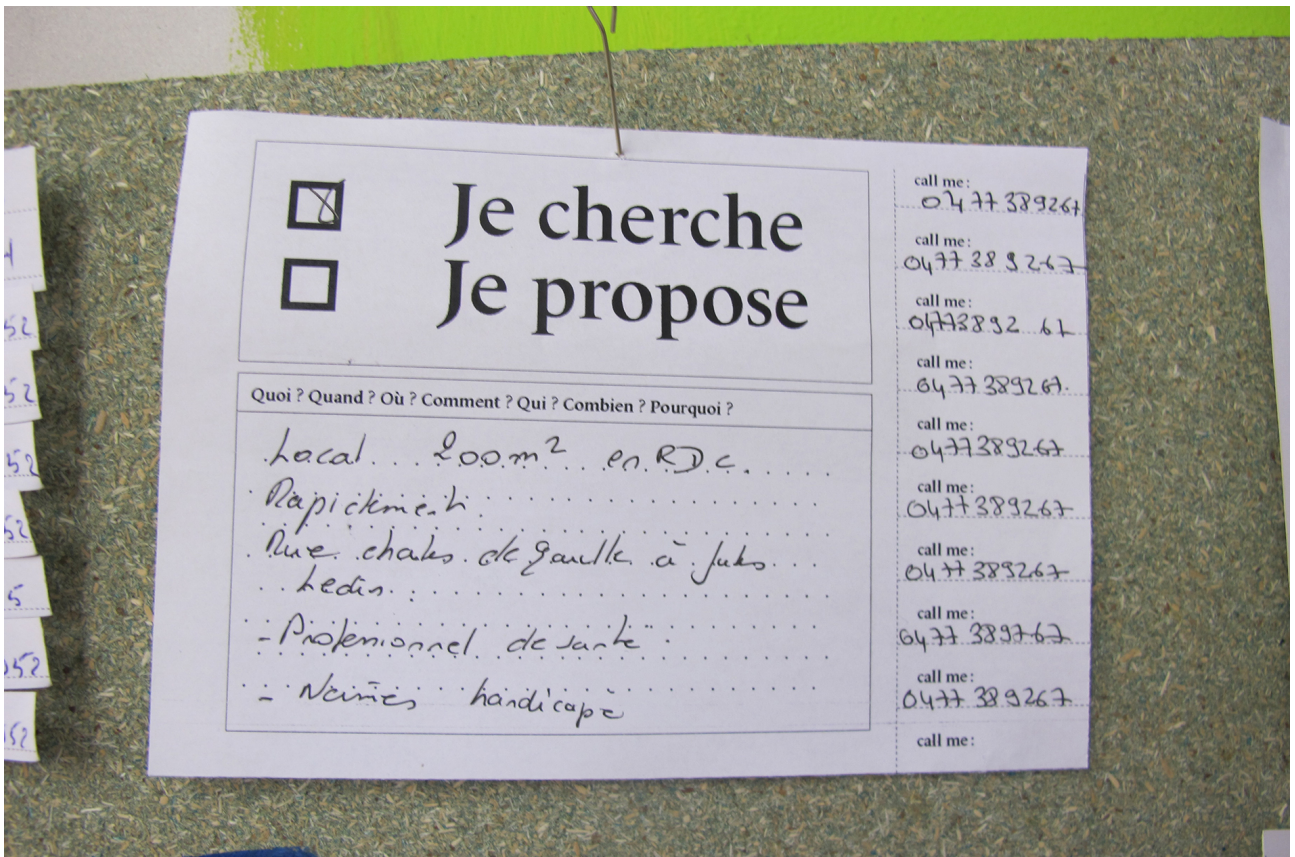 Je cherche
Je propose
Quoi ? Quand ? Où ? Comment ? Qui ? Combien ? Pourquoi ?
Local 200m² en RDC.
Rapidement.
Rue charles de Gaulle à
- Professionnel de santé
- Normes handicapé
call me :
0477389267
call me :
0477389267
call me :
0477389267
call me :
0477389267.
call me :
0477389267
call me :
0477389267
call me :
0477389267
call me :
0477389767
call me :
0477389267
call me :
52
52
52
52
5
052
52